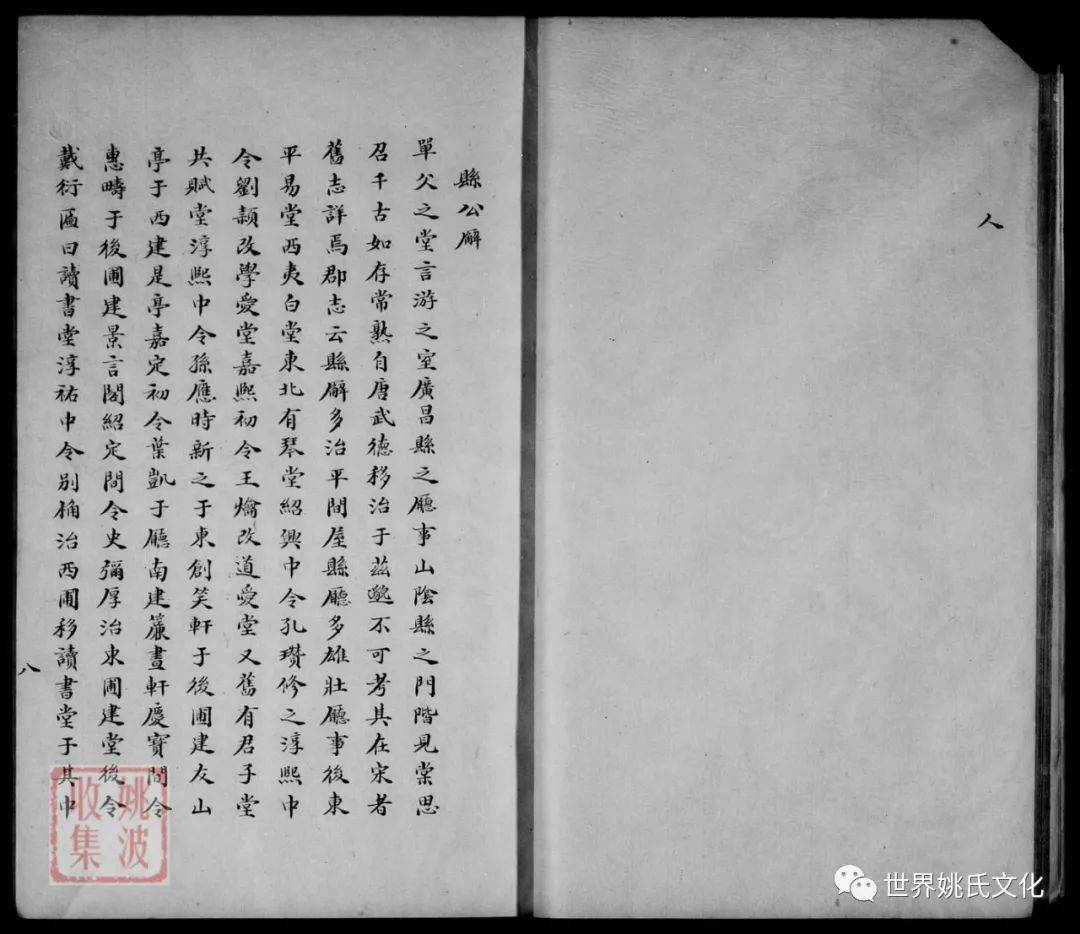 人
縣公廨
單父之堂言游之室廣昌縣之廳事山陰縣之門階見棠思
召千古如存常熟自唐武德移治于茲邈不可考其在宋者
舊志詳焉郡志云縣廨多治平間屋縣廳多雄壯廳事後東
平易堂西夷白堂東北有琴堂紹興中令孔瓚修之淳熙中
令劉頴改學愛堂嘉熙初令王爚改道愛堂又舊有君子堂
共賦堂淳熙中令孫應時新之于東創笑軒于後圃建友山
亭于西建是亭嘉定初令葉凱于廳南建簾晝軒慶寶間令
惠疇于後圃建景言閣紹定間令史彌厚治東圃建堂後令
戴衍匾曰讀書堂淳祐中令別桷治西圃移讀書堂于其中
八
姚波
收集
世界姚氏文化